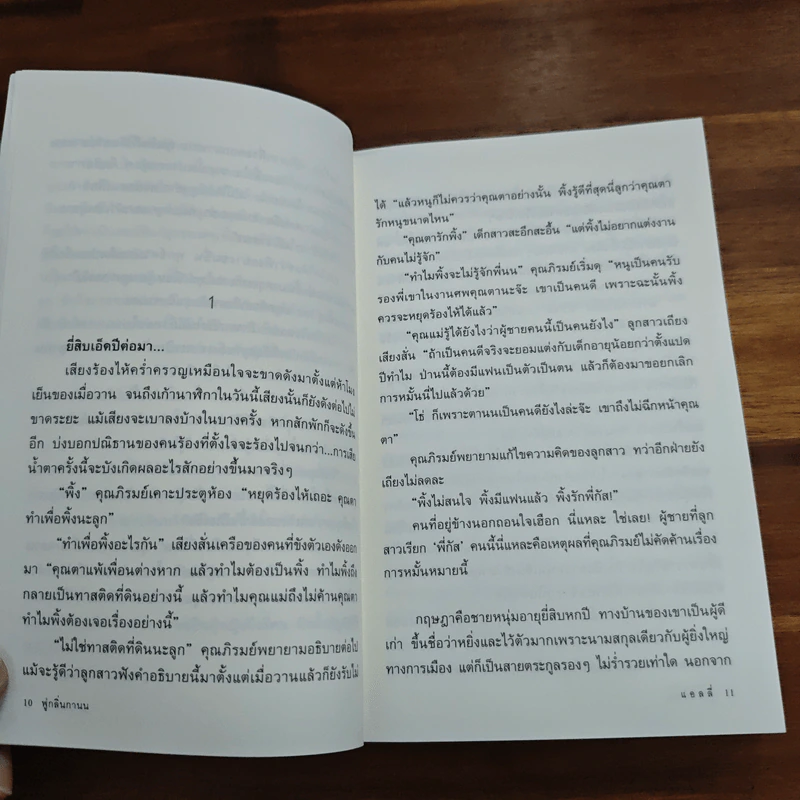 1
ยี่สิบเอ็ดปีต่อมา...
เสียงร้องไห้คร่ำครวญเหมือนใจจะขาดดังมาตั้งแต่ห้าโมง
เย็นของเมื่อวาน จนถึงเก้านาฬิกาในวันนี้เสียงนั้นก็ยังดังต่อไปไม่
ขาดระยะ แม้เสียงจะเบาลงบ้างในบางครั้ง หากสักพักก็จะดังขึ้น
อีก บ่งบอกปณิธานของคนร้องที่ตั้งใจจะร้องไปจนกว่า...การเสีย
น้ำตาครั้งนี้จะบังเกิดผลอะไรสักอย่างขึ้นมาจริงๆ
“พิ้ง” คุณภิรมย์เคาะประตูห้อง “หยุดร้องไห้เถอะ คุณตา
ทำเพื่อพิ้งนะลูก”
“ทำเพื่อพิ้งอะไรกัน” เสียงสั่นเครือของคนที่ขังตัวเองดังออก
มา “คุณตาแพ้เพื่อนต่างหาก แล้วทำไมต้องเป็นพิ้ง ทำไมพิ้งถึง
กลายเป็นทาสติดที่ดินอย่างนี้ แล้วทำไมคุณแม่ถึงไม่ค้านคุณตา
ทำไมพิ้งต้องเจอเรื่องอย่างนี้”
“ไม่ใช่ทาสติดที่ดินนะลูก” คุณภิรมย์พยายามอธิบายต่อไป
แม้จะรู้ดีว่าลูกสาวฟังคำอธิบายนี้มาตั้งแต่เมื่อวานแล้วก็ยังรับไม่
10 ฟูกลิ่นกานน
ได้ “แล้วหนูก็ไม่ควรว่าคุณตาอย่างนั้น พิ้งรู้ดีที่สุดนี่ลูกว่าคุณตา
รักหนูขนาดไหน”
“คุณตารักพิ้ง” เด็กสาวสะอึกสะอื้น “แต่พิ้งไม่อยากแต่งงาน
กับคนไม่รู้จัก”
“ทำไมพิ้งจะไม่รู้จักพี่นน” คุณภิรมย์เริ่มดุ “หนูเป็นคนรับ
รองพี่เขาในงานศพคุณตานะจ๊ะ เขาเป็นคนดี เพราะฉะนั้นพิ้ง
ควรจะหยุดร้องไห้ได้แล้ว”
“คุณแม่รู้ได้ยังไงว่าผู้ชายคนนี้เป็นคนยังไง” ลูกสาวเถียง
เสียงสั่น “ถ้าเป็นคนดีจริงจะยอมแต่งกับเด็กอายุน้อยกว่าตั้งแปด
ปีทำไม ป่านนี้ต้องมีแฟนเป็นตัวเป็นตน แล้วก็ต้องมาขอยกเลิก
การหมั้นนี่ไปแล้วด้วย”
“โธ่ ก็เพราะตานนเป็นคนดียังไงล่ะจ๊ะ เขาถึงไม่ฉีกหน้าคุณ
ตา”
คุณภิรมย์พยายามแก้ไขความคิดของลูกสาว ทว่าอีกฝ่ายยัง
เถียงไม่ลดละ
“พิ้งไม่สนใจ พิ้งมีแฟนแล้ว พิ้งรักพี่กัส!”
คนที่อยู่ข้างนอกถอนใจเฮือก นี่แหละ ใช่เลย! ผู้ชายที่ลูก
สาวเรียก ‘พี่กัส’ คนนี้นี่แหละคือเหตุผลที่คุณภิรมย์ไม่คัดค้านเรื่อง
การหมั้นหมายนี้
กฤษฎาคือชายหนุ่มอายุยี่สิบหกปี ทางบ้านของเขาเป็นผู้ดี
เก่า ขึ้นชื่อว่าหยิ่งและไว้ตัวมากเพราะนามสกุลเดียวกับผู้ยิ่งใหญ่
ทางการเมือง แต่ก็เป็นสายตระกูลรองๆ ไม่ร่ำรวยเท่าใด นอกจาก
แอลลี่ 11